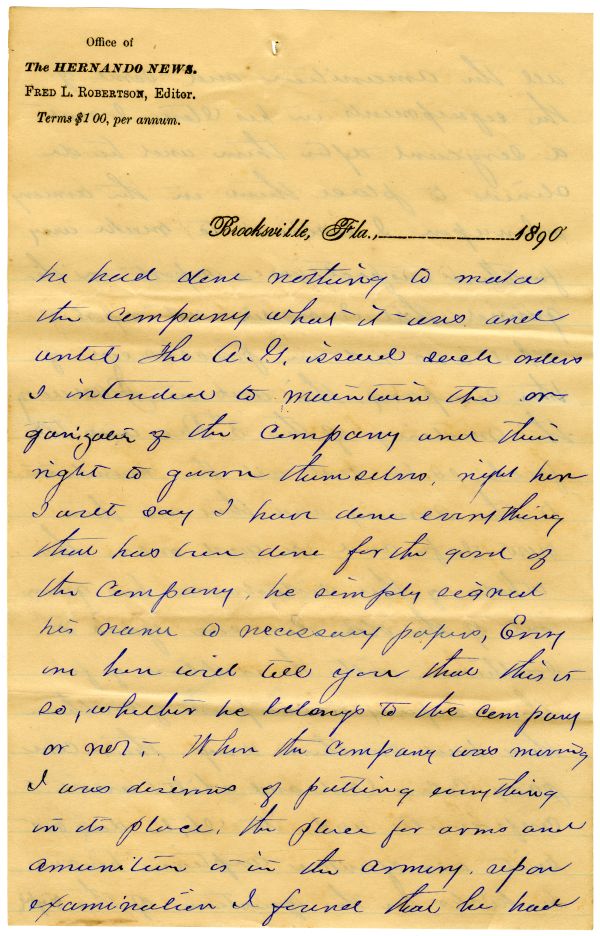 Office of
The HERNANDO NEWS.
FRED L. ROBERTSON, Editor.
Terms $1 00, per annum.
Brooksville, Fla., 1890
he had done nothing to make
the company what it was and
until the A.G. issued such orders
I intended to maintain the or-
ganization of the company and their
right to govern themselves, right here
I will say I have done everything
that has been done for the good of
the company, he simply signed
his name to necessary papers, Every
one here will tell you that this is
so, whether he belongs to the company
or not. When the company was moving
I was desirous of putting everything
in its place, the place for arms and
amunition is in the armory, upon
examination I found that he had